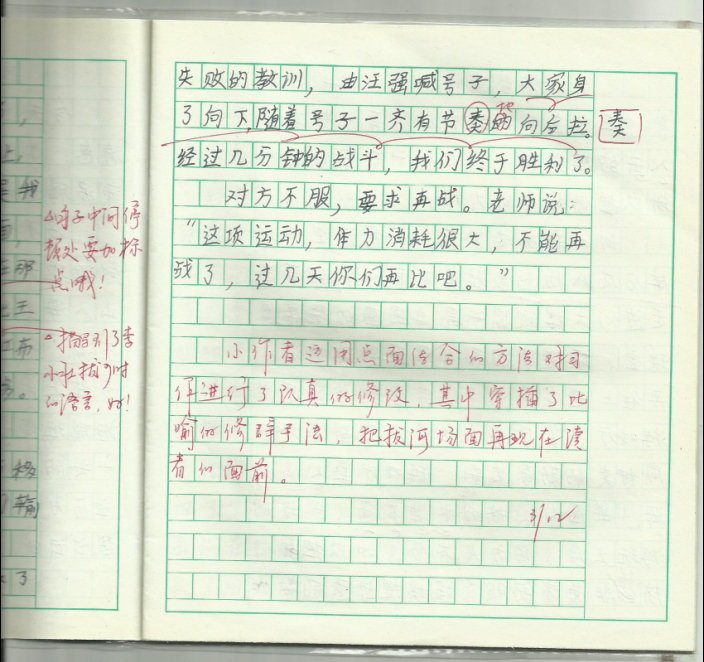 句子中间停
顿处要加标
点哦!
小红拔河时
的语言,好!
失败的教训,由汪强喊号子,大家身
子向下,随着号子一齐有节奏的向后拉。
地
奏
经过几分钟的战斗,我们终于胜利了。
对方不服,要求再战。老师说:
“这项运动,体力消耗很大,不能再
战了,过几天你们再比吧。”
小作者运用点面结合的方法对习
作进行了认真的修改,其中穿插了比
喻的修辞手法,把拔河场面再现在读
者的面前。
3/12